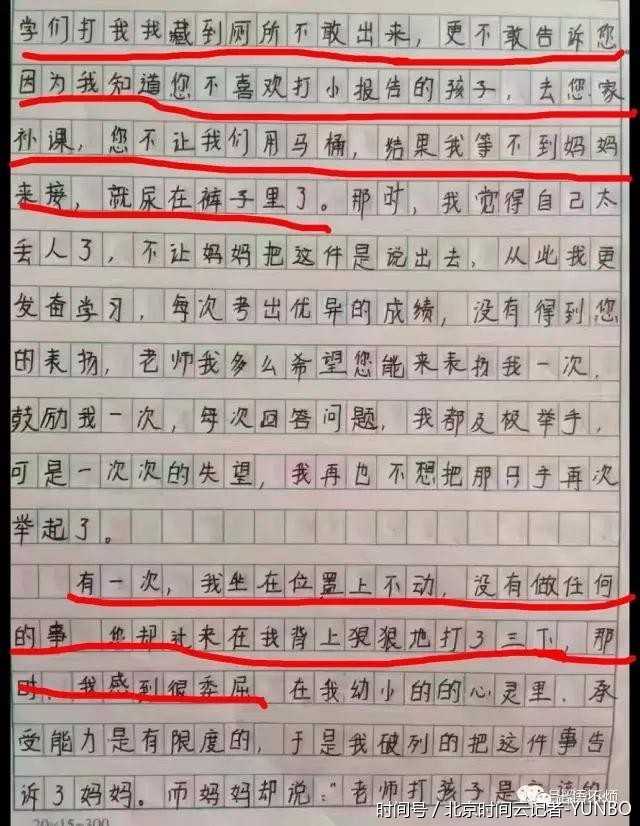 学们打我我藏到厕所不敢出来，更不敢告诉您
因为我知道您不喜欢打小报告的孩子，去您家
补课，您不让我们用马桶，结果我等不到妈妈
来接，就尿在裤子里了。那时，我觉得自己太
丢人了，不让妈妈把这件是说出去，从此我更
发奋学习，每次考出优异的成绩，没有得到您
的表扬，老师我多么希望您能来表扬我一次，
鼓励我一次，每次回答问题，我都及极举手，
可是一次次的失望，我再也不想把那只手再次
举起了。
有一次，我坐在位置上不动，没有做任何
的事 您却过来在我背上狠狠地打了三下，那
时，我感到很委屈 在我幼小的的心灵里．承
受能力是有限度的，于是我破列的把这件事告
诉了妈妈。而妈妈却说："老师打孩子是
20×15=300
时间号 / 北京时间云记者-YUNBO